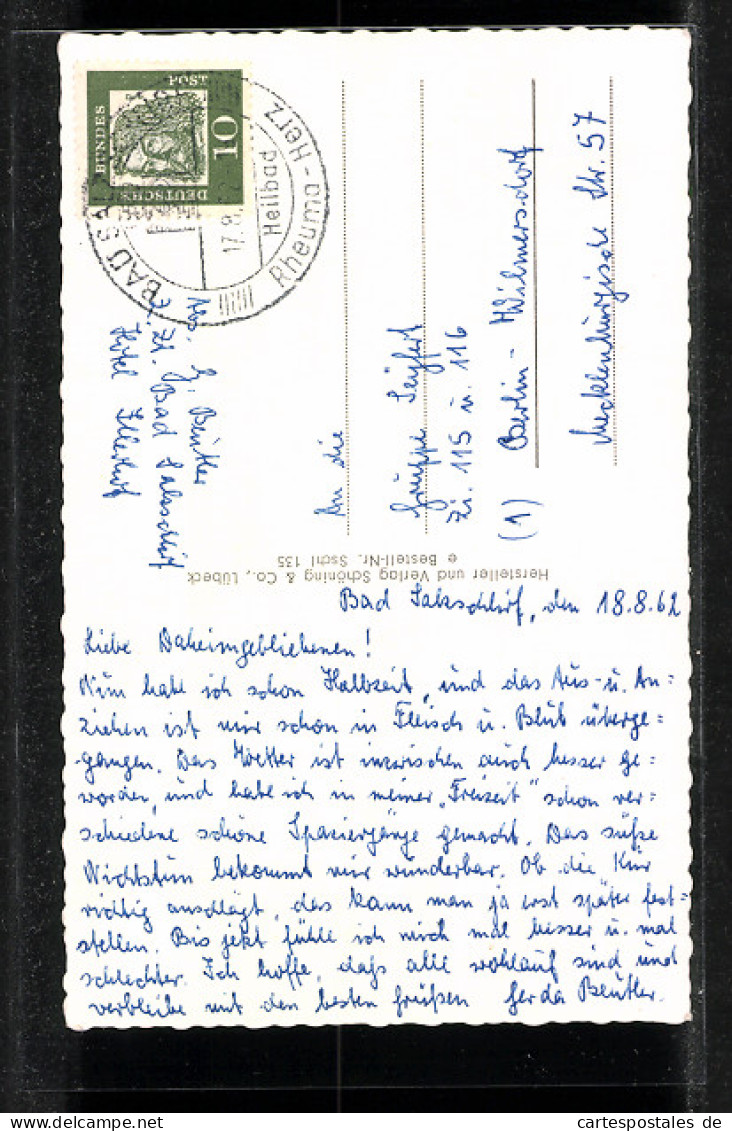 DEUTSCHE
BUNDES
POST
10
BAD
17.8.
Heilbad
Rheuma-Herz
Abs. G. Beutler
z. Zt. Bad Salzschlirf
Hotel
An die
Gruppe Seyfert
Zi. 115 u. 116
(1) Berlin-Wilmersdorf
Mecklenburgische Str. 57
Hersteller und Verlag Schöning & Co., Lübeck
Bestell-Nr. Sschl 135
Bad Salzschlirf, den 18.8.62
Liebe Daheimgebliebenen!
Nun habe ich schon Halbzeit, und das Aus- u. An=
ziehen ist mir schon in Fleisch u. Blut überge=
gangen. Das Wetter ist inzwischen auch besser ge=
worden, und habe ich in meiner „Freizeit" schon ver=
schiedene schöne Spaziergänge gemacht. Das süße
Nichtstun bekommt mir wunderbar. Ob die Kur
richtig anschlägt, das kann man ja erst später fest=
stellen. Bis jetzt fühle ich mich mal besser u. mal
schlechter. Ich hoffe, daß alle wohlauf sind und
verbleibe mit den besten Grüßen Gerda Beutler.
© cartespostales.de